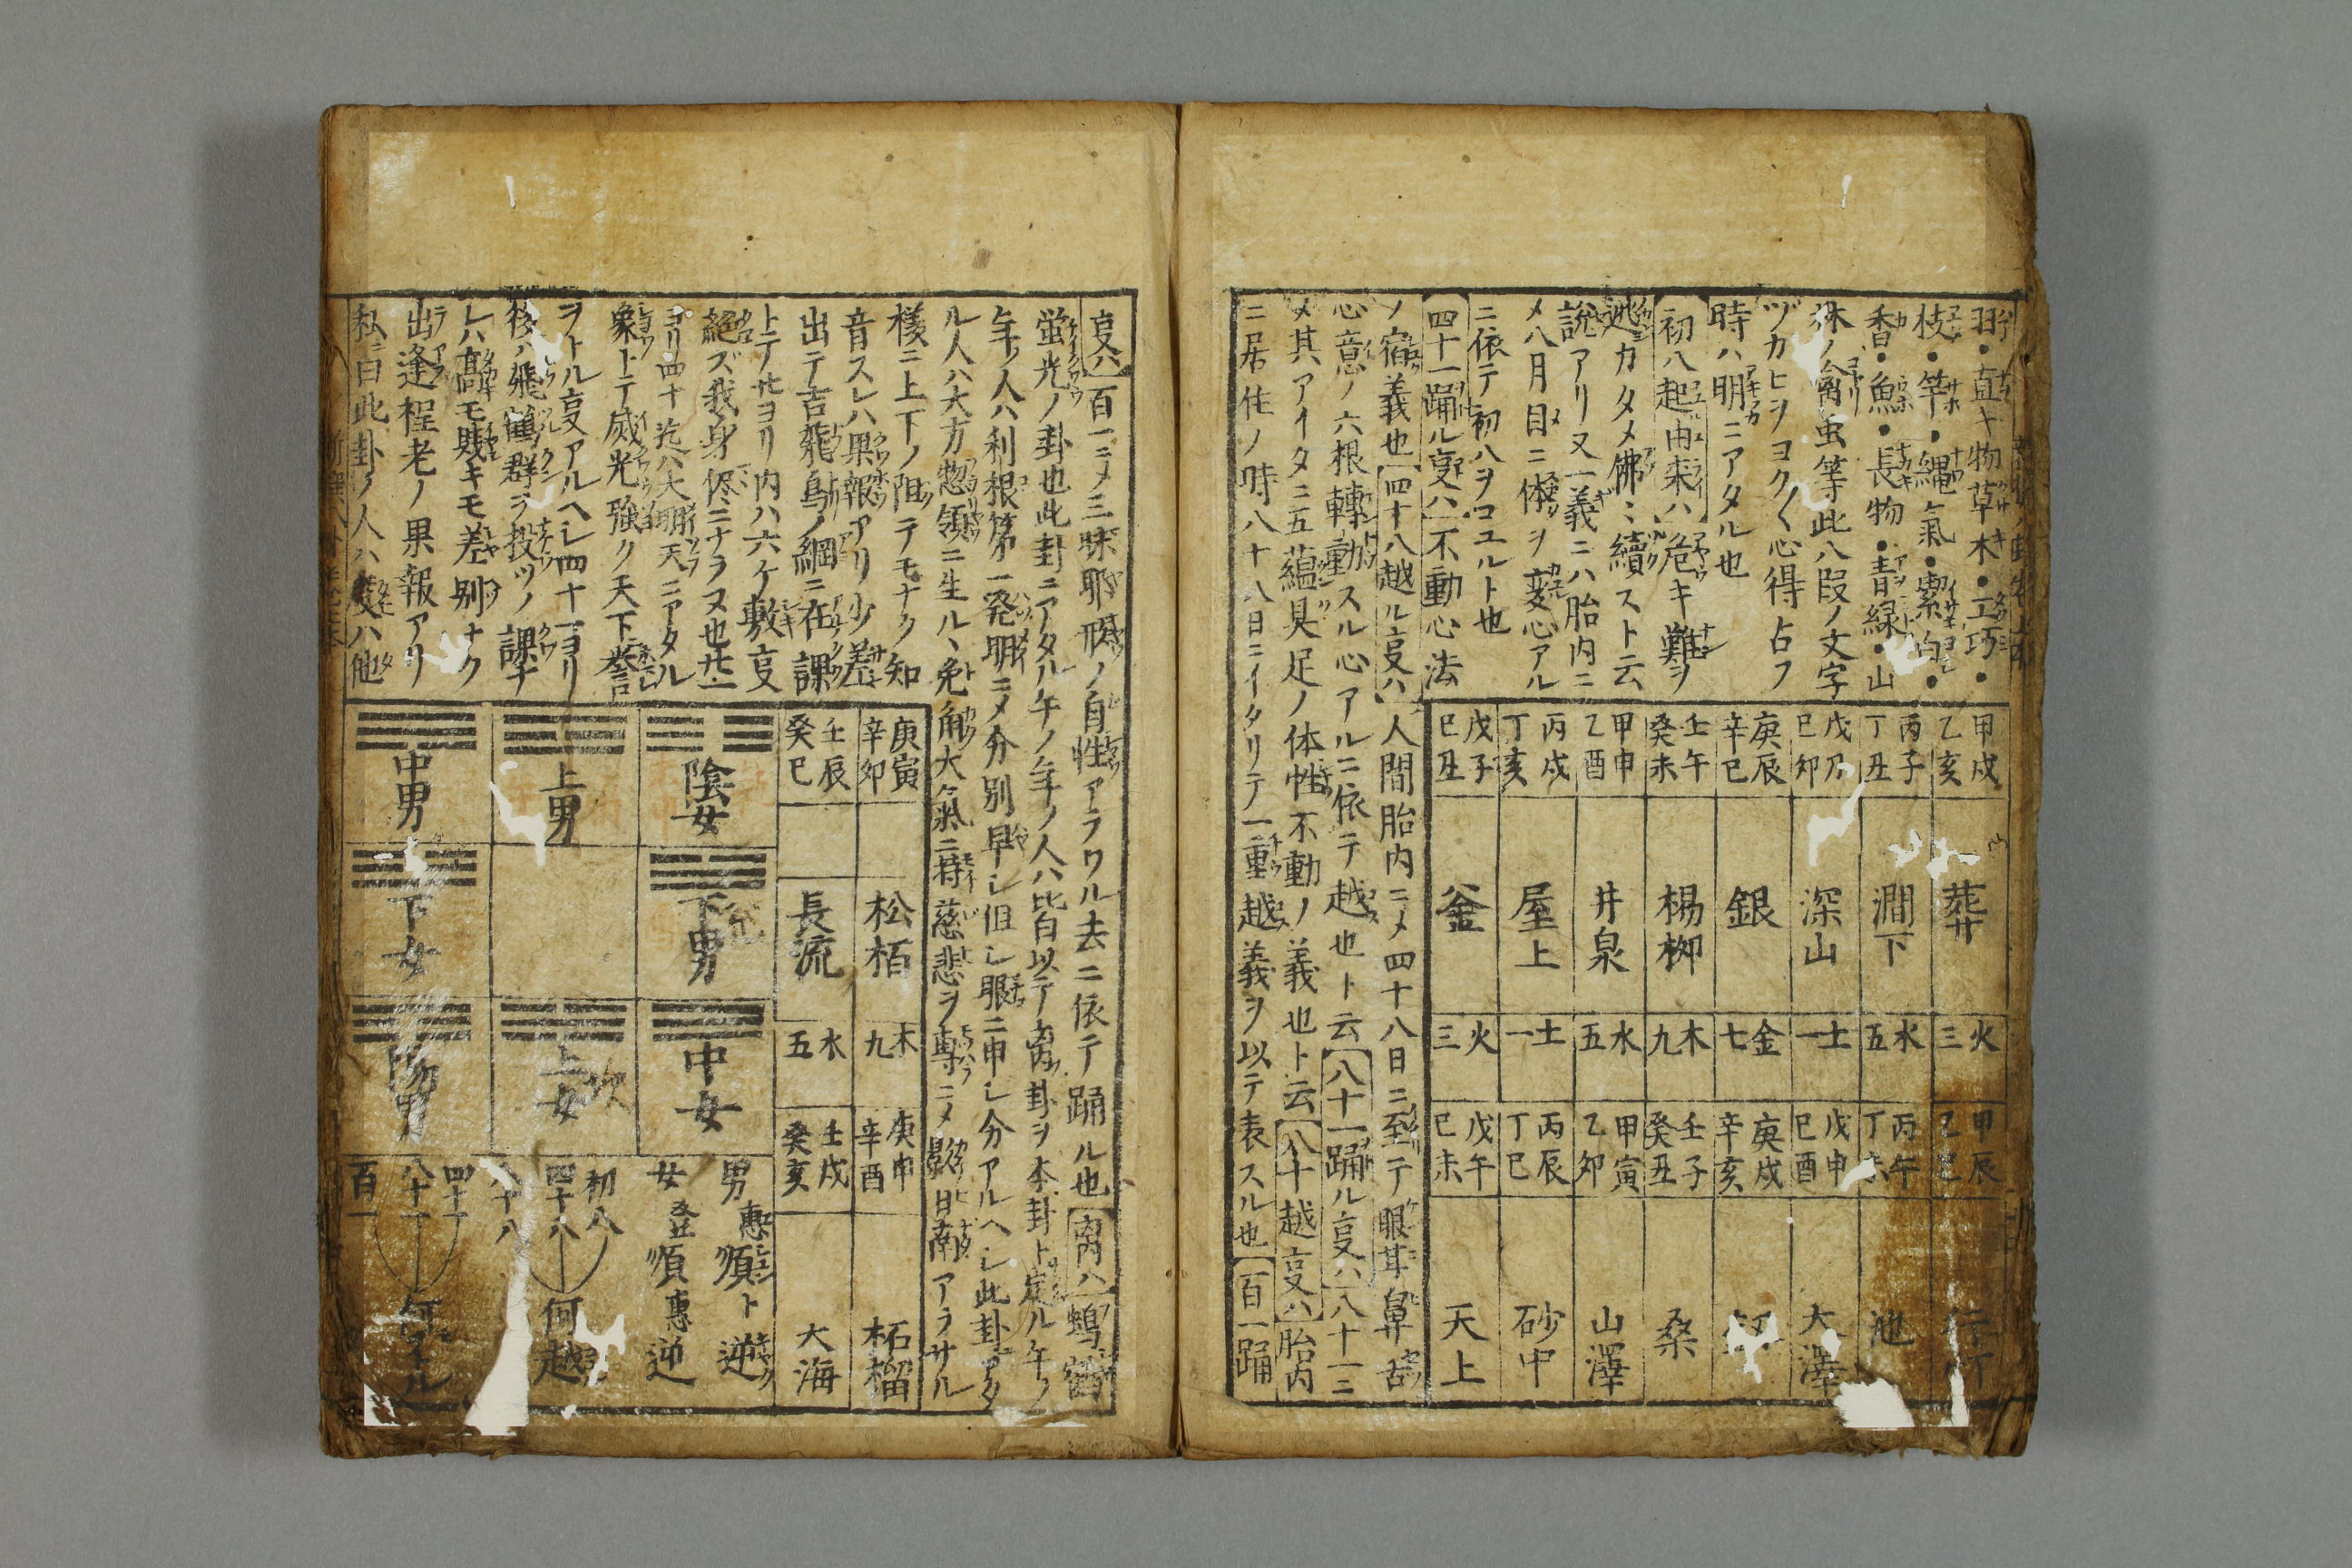 羽・直キ物草木・工巧・
枝・竿・縄・氣・・
香・魚・長物・青緑・山
林ノ禽虫等此八段ノ文字
ヅカヒヲヨク〱心得占フ
時ハ明ニアタル也
初八起由来ハ危キ難ヲ
逃カタメ佛ミ續スト云
説アリ又一義ニハ胎内ニ
メ八月目ニ体ヲ変心アル
ニ依テ初八ヲコユルト也
四十一踊ル叓ハ不動心法
ノ宿義也四十八越ル叓ハ人間胎内ニメ四十八日ニ至テ眼耳鼻舌
心意ノ六根轉動スル心アルニ依テ越也ト云八十一踊ル叓ハ八十一ニ
メ其アイタニ五蘊具足ノ体性不動ノ義也ト云八十越叓ハ胎内
ニ居住ノ時八十八日ニイタリテ一重越義ヲ以テ表スル也百一踊
甲戌 乙亥 葬 火三 甲辰 乙巳
丙子 丁丑 澗下 水五 丙午 丁未 池
戊刀 巳卯 深山 土一 戊申 巳酉 大澤
庚辰 辛巳 銀 金七 庚戌 辛亥
壬午 癸未 楊柳 木九 壬子 癸丑 桑
甲申 乙酉 井泉 水五 甲寅 乙卯 山澤
丙戌 丁亥 屋上 土一 丙辰 丁巳 砂中
戊子 巳丑 釜 火三 戊午 巳未 天上
叓ハ百一ニメ三昧耶形ノ自性アラワル去ニ依テ踊ル也离ハ
螢光ノ卦也此卦ニアタル午ノ年ノ人ハ比皆以テ离卦ヲ本卦ト定ル午ノ
年ノ人ハ利根第一発明ニメ分別早シ但シ眼ニ申シ分アルヘシ此卦アタ
ル人ハ大方惣領ニ生ル、免角大氣ニ持慈悲ヲ専ニメ影日南アラサル
様ニ上下ノ阻テモナク知
音スレハ果報アリ少差
出テ吉飛鳥ノ綱ニ在課
トテ廿ヨリ内ハ六ケ敷叓
絶ズ我身侭ニナラヌ也廿一
ヨリ四十迄ハ大朙天ニアタル
象トテ威光強ク天下誉
ヲトル叓アルヘシ四十一ヨリ
後ハ飛鶴群ヲ投ツノ課ナ
レハ髙キモ賎キモ差別ナク
出逢程老ノ果報アリ
私ニ曰此卦ノ人ハ ハ他
庚寅 辛卯 松栢 木九 庚申 辛酉 柘榴
壬辰 癸巳 長流 水五 壬戌 癸亥 大海
☱ 陰女
下男
中女
男 惠順ト逆
女 登順惠逆
上男
上女
初八
四十八 何越
八十八
中男
下女
陽男
四十一
八十一 何ヲトル
百一